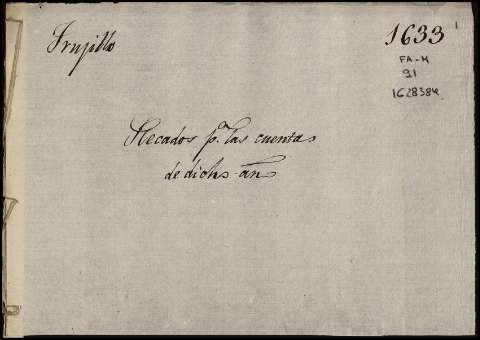 Trujillo
1633
1
FA-M
91
1628384
Recados p.ª las cuentas
de dicho añ